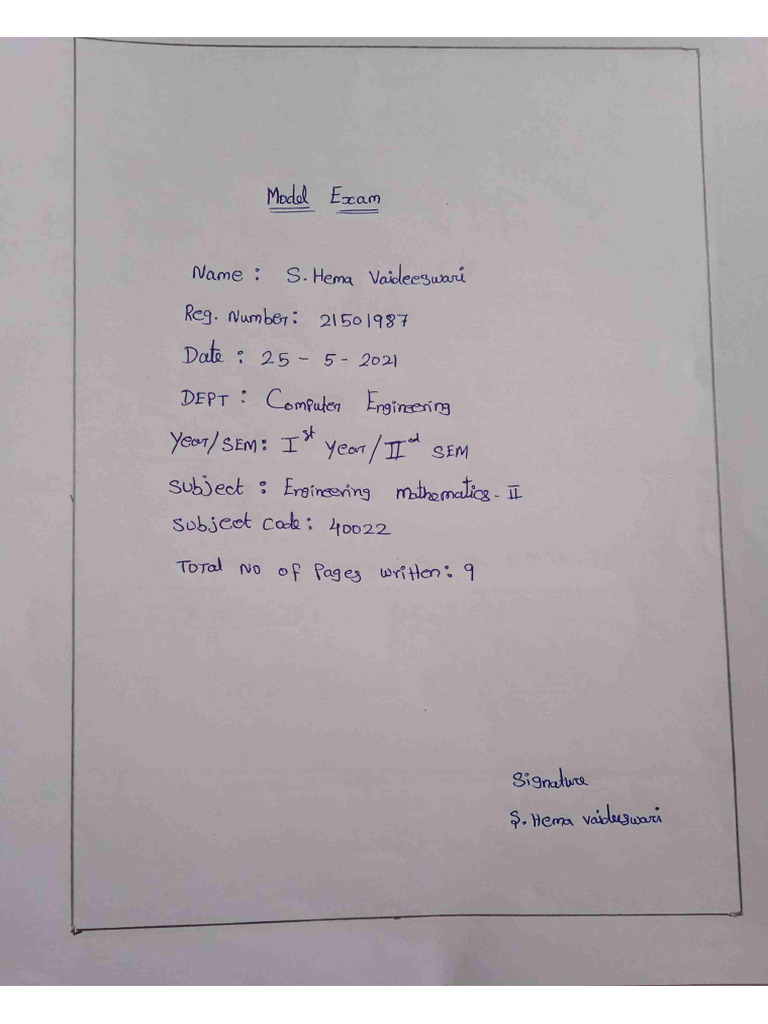 Model Exam
Name : S. Hema Vaideeswari
Reg. Number: 21501987
Date : 25 - 5 - 2021
DEPT : Computer Engineering
Year/SEM: Ist Year/IInd SEM
Subject : Engineering mathematics - II
Subject Code: 40022
Total No of Pages written: 9
Signature
S. Hema Vaideeswari